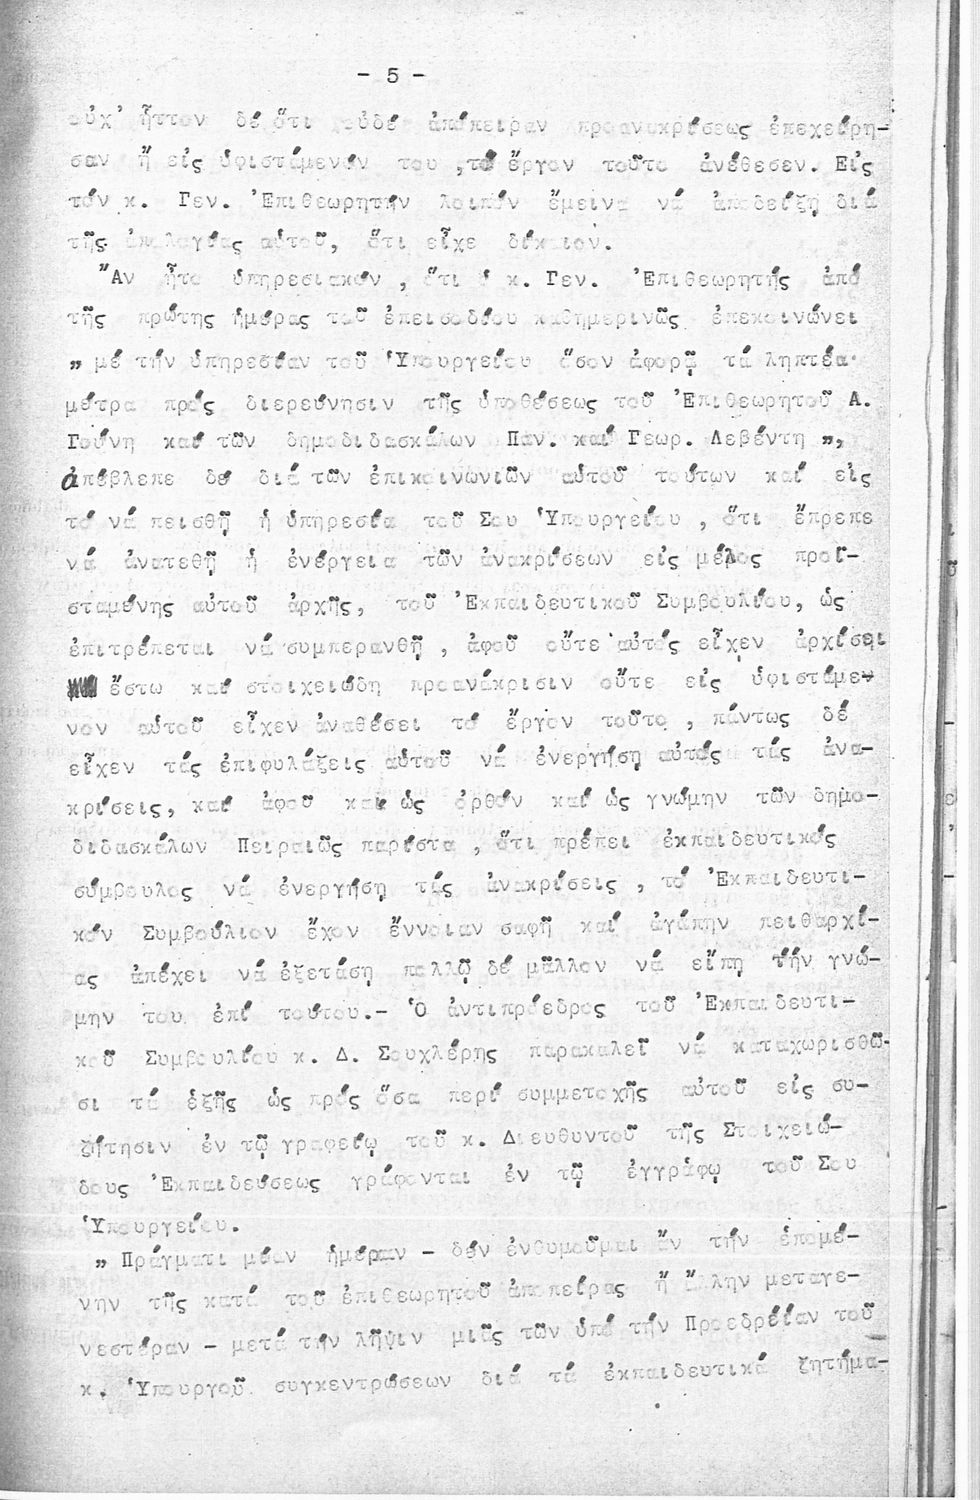 - 5 -
οὐχ' ἧττον δέ ὅτι οὐδέ ἀπόπειραν προανακρίσεως ἐπεχείρη-
σαν ἤ εἰς ὑφιστάμενόν του ,τό ἔργον τοῦτο ἀνέθεσεν. Εἰς
τόν κ. Γεν. Ἐπιθεωρητήν λοιπόν ἔμεινε νά ἀποδείξῃ διά
τῆς ἀπολογίας αὐτοῦ, ὅτι εἶχε δίκαιον.
"Αν ἦτο ὑπηρεσιακόν , ὅτι ὁ κ. Γεν. Ἐπιθεωρητής ἀπό
τῆς πρώτης ἡμέρας τοῦ ἐπεισοδίου καθημερινῶς ἐπεκοινώνει
„ μέ τήν ὑπηρεσίαν τοῦ Ὑπουργείου ὅσον ἀφορᾷ τά ληπτέα
μέτρα πρός διερεύνησιν τῆς ὑποθέσεως τοῦ Ἐπιθεωρητοῦ Α.
Γούνη καί τῶν δημοδιδασκάλων Παν. καί Γεωρ. Λεβέντη „,
ἀπέβλεπε δέ διά τῶν ἐπικοινωνιῶν αὐτοῦ τούτων καί εἰς
τό νά πεισθῇ ἡ ὑπηρεσία τοῦ Σου Ὑπουργείου , ὅτι ἔπρεπε
νά ἀνατεθῇ ἡ ἐνέργεια τῶν ἀνακρίσεων εἰς μέλος προϊ-
σταμένης αὐτοῦ ἀρχῆς, τοῦ Ἐκπαιδευτικοῦ Συμβουλίου, ὡς
ἐπιτρέπεται νά συμπερανθῇ , ἀφοῦ οὔτε αὐτός εἶχεν ἀρχίσει
ἔστω καί στοιχειώδη προανάκρισιν οὔτε εἰς ὑφιστάμε-
νον αὐτοῦ εἶχεν ἀναθέσει τό ἔργον τοῦτο , πάντως δέ
εἶχεν τάς ἐπιφυλάξεις αὐτοῦ νά ἐνεργήσῃ αὐτός τάς ἀνα-
κρίσεις, καί ἀφοῦ και ὡς ὀρθόν καί ὡς γνώμην τῶν δημο-
διδασκάλων Πειραιῶς παρίστα , ὅτι πρέπει ἐκπαιδευτικός
σύμβουλος νά ἐνεργήσῃ τάς ἀνακρίσεις , τό Ἐκπαιδευτι-
κόν Συμβούλιον ἔχον ἔννοιαν σαφῆ καί ἀγάπην πειθαρχί-
ας ἀπέχει νά ἐξετάσῃ πολλῷ δέ μᾶλλον νά εἴπῃ τήν γνώ-
μην του ἐπί τούτου.- Ὁ ἀντιπρόεδρος τοῦ Ἐκπαιδευτι-
κοῦ Συμβουλίου κ. Δ. Σουχλέρης παρακαλεῖ νά καταχωρισθῶ-
σι τά ἑξῆς ὡς πρός ὅσα περί συμμετοχῆς αὐτοῦ εἰς συ-
ζήτησιν ἐν τῷ γραφείῳ τοῦ κ. Διευθυντοῦ τῆς Στοιχειώ-
δους Ἐκπαιδεύσεως γράφονται ἐν τῷ ἐγγράφῳ τοῦ Σου
Ὑπουργείου.
„ Πράγματι μίαν ἡμέραν - δέν ἐνθυμοῦμαι ἄν τήν ἑπομέ-
νην τῆς κατά τοῦ ἐπιθεωρητοῦ ἀποπείρας ἤ ἄλλην μεταγε-
νεστέραν - μετά τήν λῆψιν μιᾶς τῶν ὑπό τήν Προεδρείαν τοῦ
κ. Ὑπουργοῦ συγκεντρώσεων διά τά ἐκπαιδευτικά ζητήμα-